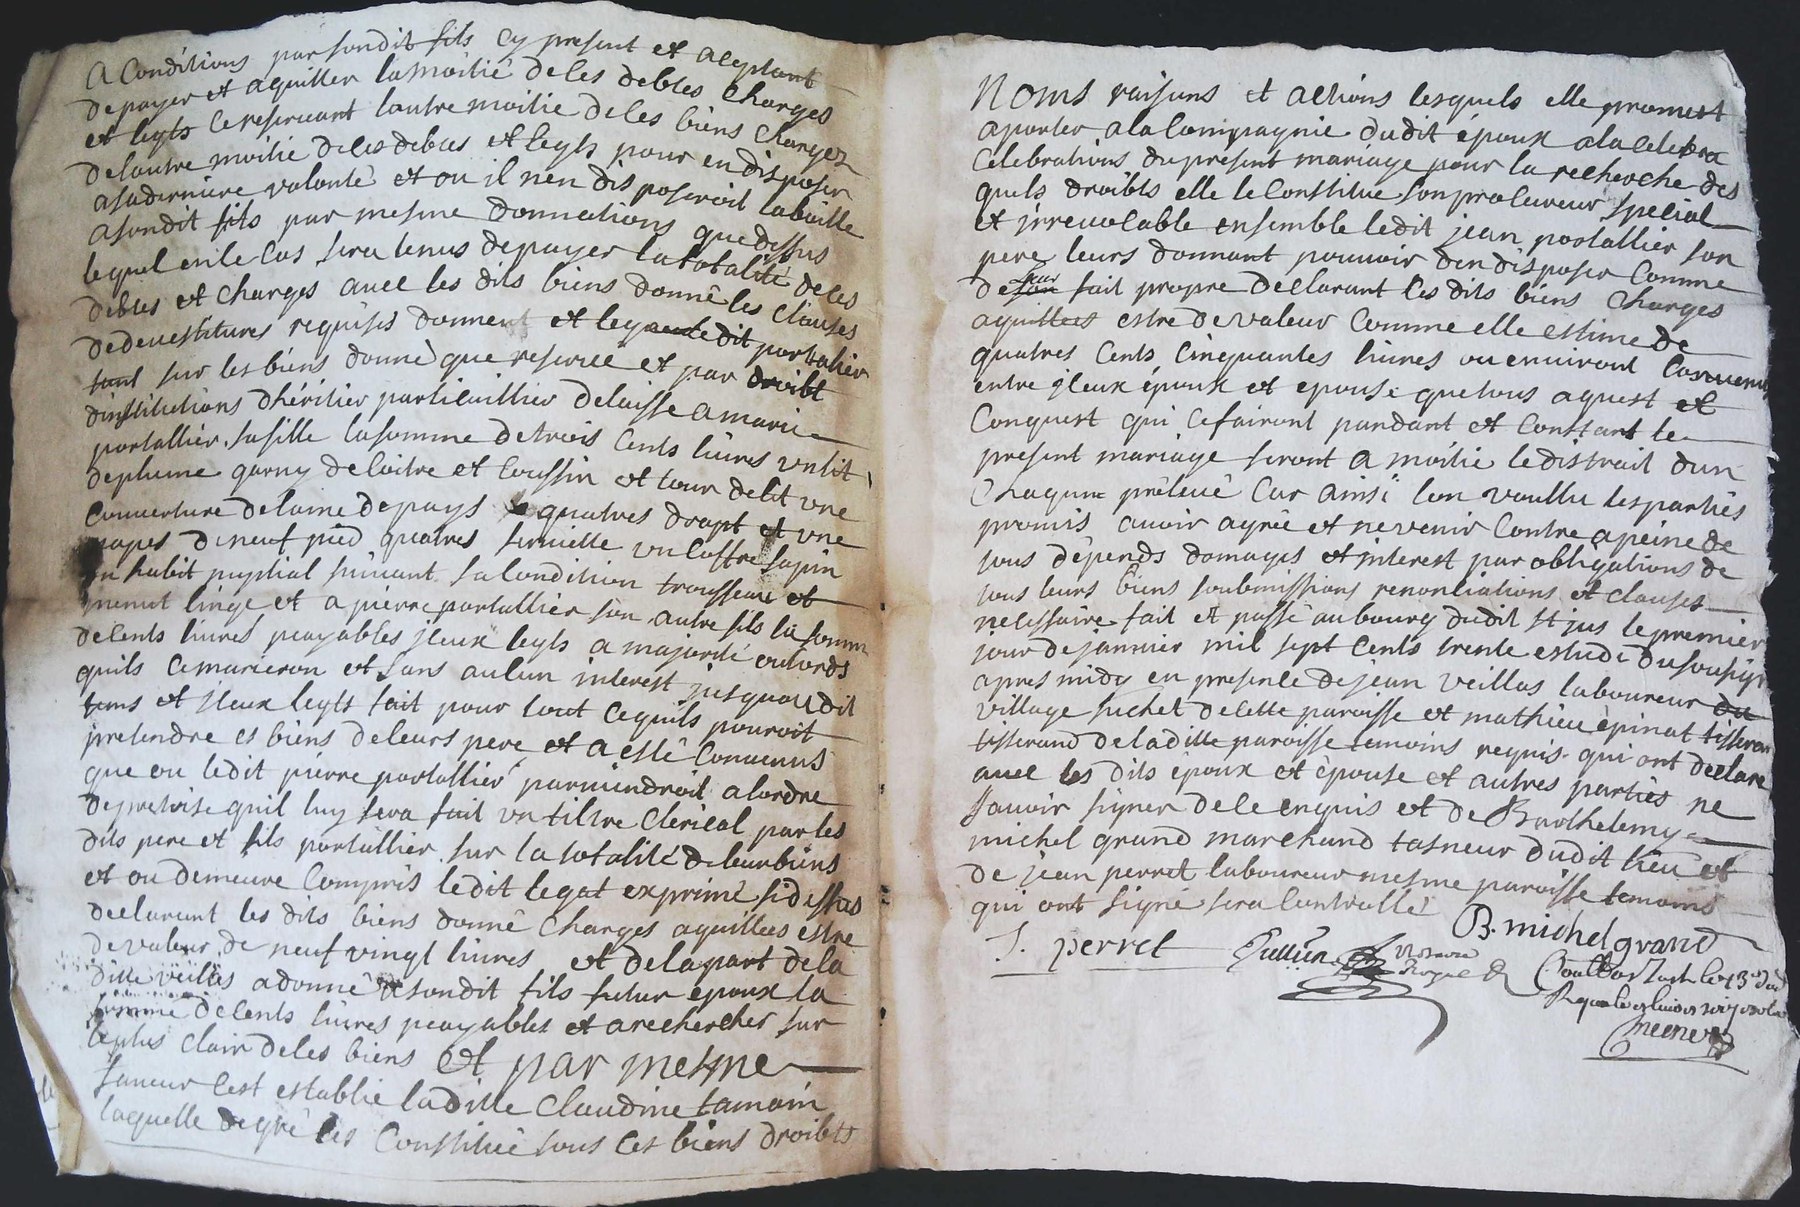 A Conditions par sondit fils cy present et aceptant
de payer et aquitter la moitié de ses debtes charges
et legts ce reservant lautre moitie de ses biens charges
de lautre moitie de ses debtes et legts pour en disposer
a sa derniere volonté et ou il nen disposeroit la baille
a sondit fils par mesme donnations que dessus
lequel en ce cas sera tenus de payer la totalité de ces
debtes et charges avec les dits biens donné les clauses
de devestitures requises donnent et legue ledit portalier
tant sur les biens donné que reservé et par droibt
dinstitutions dhéritier particuillier delaisse a marie
portallier sa fille la somme de trois cents livres un lit
de plume garny de coitre et coussin et tour de lit une
couverture de laine de pays quatres drapt et une
napes de neuf pied quatres serviette un coffre sapin
un habit nuptial suivant sa condition trousseau et
menut linge et a pierre portallier son autre fils la somm
de cents livres payables jceux legts a majorité ou lords
quils ce marieron et sans aucun interest jusquaudit
tems et jceux legts fait pour tout ce quils pouroit
pretendre es biens de leurs pere et a esté convenus
que ou ledit pierre portallier parviendroit a lordre
de pretrise quil luy sera fait un tiltre clerical par les
dits pere et fils portallier sur la totalité de leur biens
et ou demeure compris ledit legat exprimé sidessus
declarant les dits biens donné charges aquittees estre
de valeur de neuf vingt livres et de la part de la
ditte veillas a donné a sondit fils futur epoux la
somme de cents livres payables et a rechercher sur
le plus clair de ses biens et par mesme
faveur cest establie laditte Claudine tamain
laquelle de gré ces constitué tous ces biens droibts
Noms raisons et actions lesquels elle promest
aporter a la compagnie dudit époux a la celebra
celebrations du present mariage pour la recherche des
quels droibts elle le constitue son procureur special
et jrrevocable ensemble ledit jean portallier son
pere leurs donnant pouvoir den disposer comme
de leur fait propre declarant les dits biens charges
aquittees estre de valeur comme elle estime de
quatres cents cinquantes livres ou environt convenu
entre jceux époux et epouse que tous aquest et
conquest qui ce fairont pandant et constant le
present mariage seront a moitié le distrait dun
chaqune prélevé car ainsi lon voullu les partiés
promis avoir agrée et ne venir contre a peine de
tous dépends domages et interest par obligations de
tous leurs biens soubmissions renonciations et clauses
necessaire fait et passé au bourg dudit st jus le premier
jour de janvier mil sept cents trente estude du sousigné
apres midy en presence de jean veillas laboureur du
village suchet de cette paroisse et mathieu épinat tisseran
tisserand de laditte paroisse temoins requis qui ont declaré
avec les dits époux et épouse et autres partiés ne
scavoir signer de ce enquis et de Barthelemy
michel grand marchand tasneur dudit lieu et
de jean perret laboureur mesme paroisse temoins
qui ont signé sera controllé
J. perret
B. michel grand
Notaire
Royal